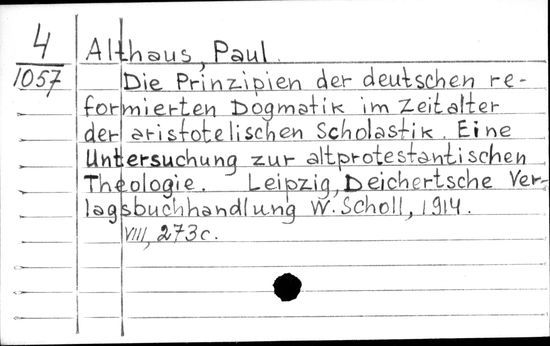 4
1057
Althaus, Paul.
Die Prinzipien der deutschen re-
formierten Dogmatik im Zeitalter
der aristotelischen Scholastik. Eine
Untersuchung zur altprotestantischen
Theologie. Leipzig, Deichertsche Ver-
lagsbuchhandlung W. Scholl, 1914.
VIII, 273 c.